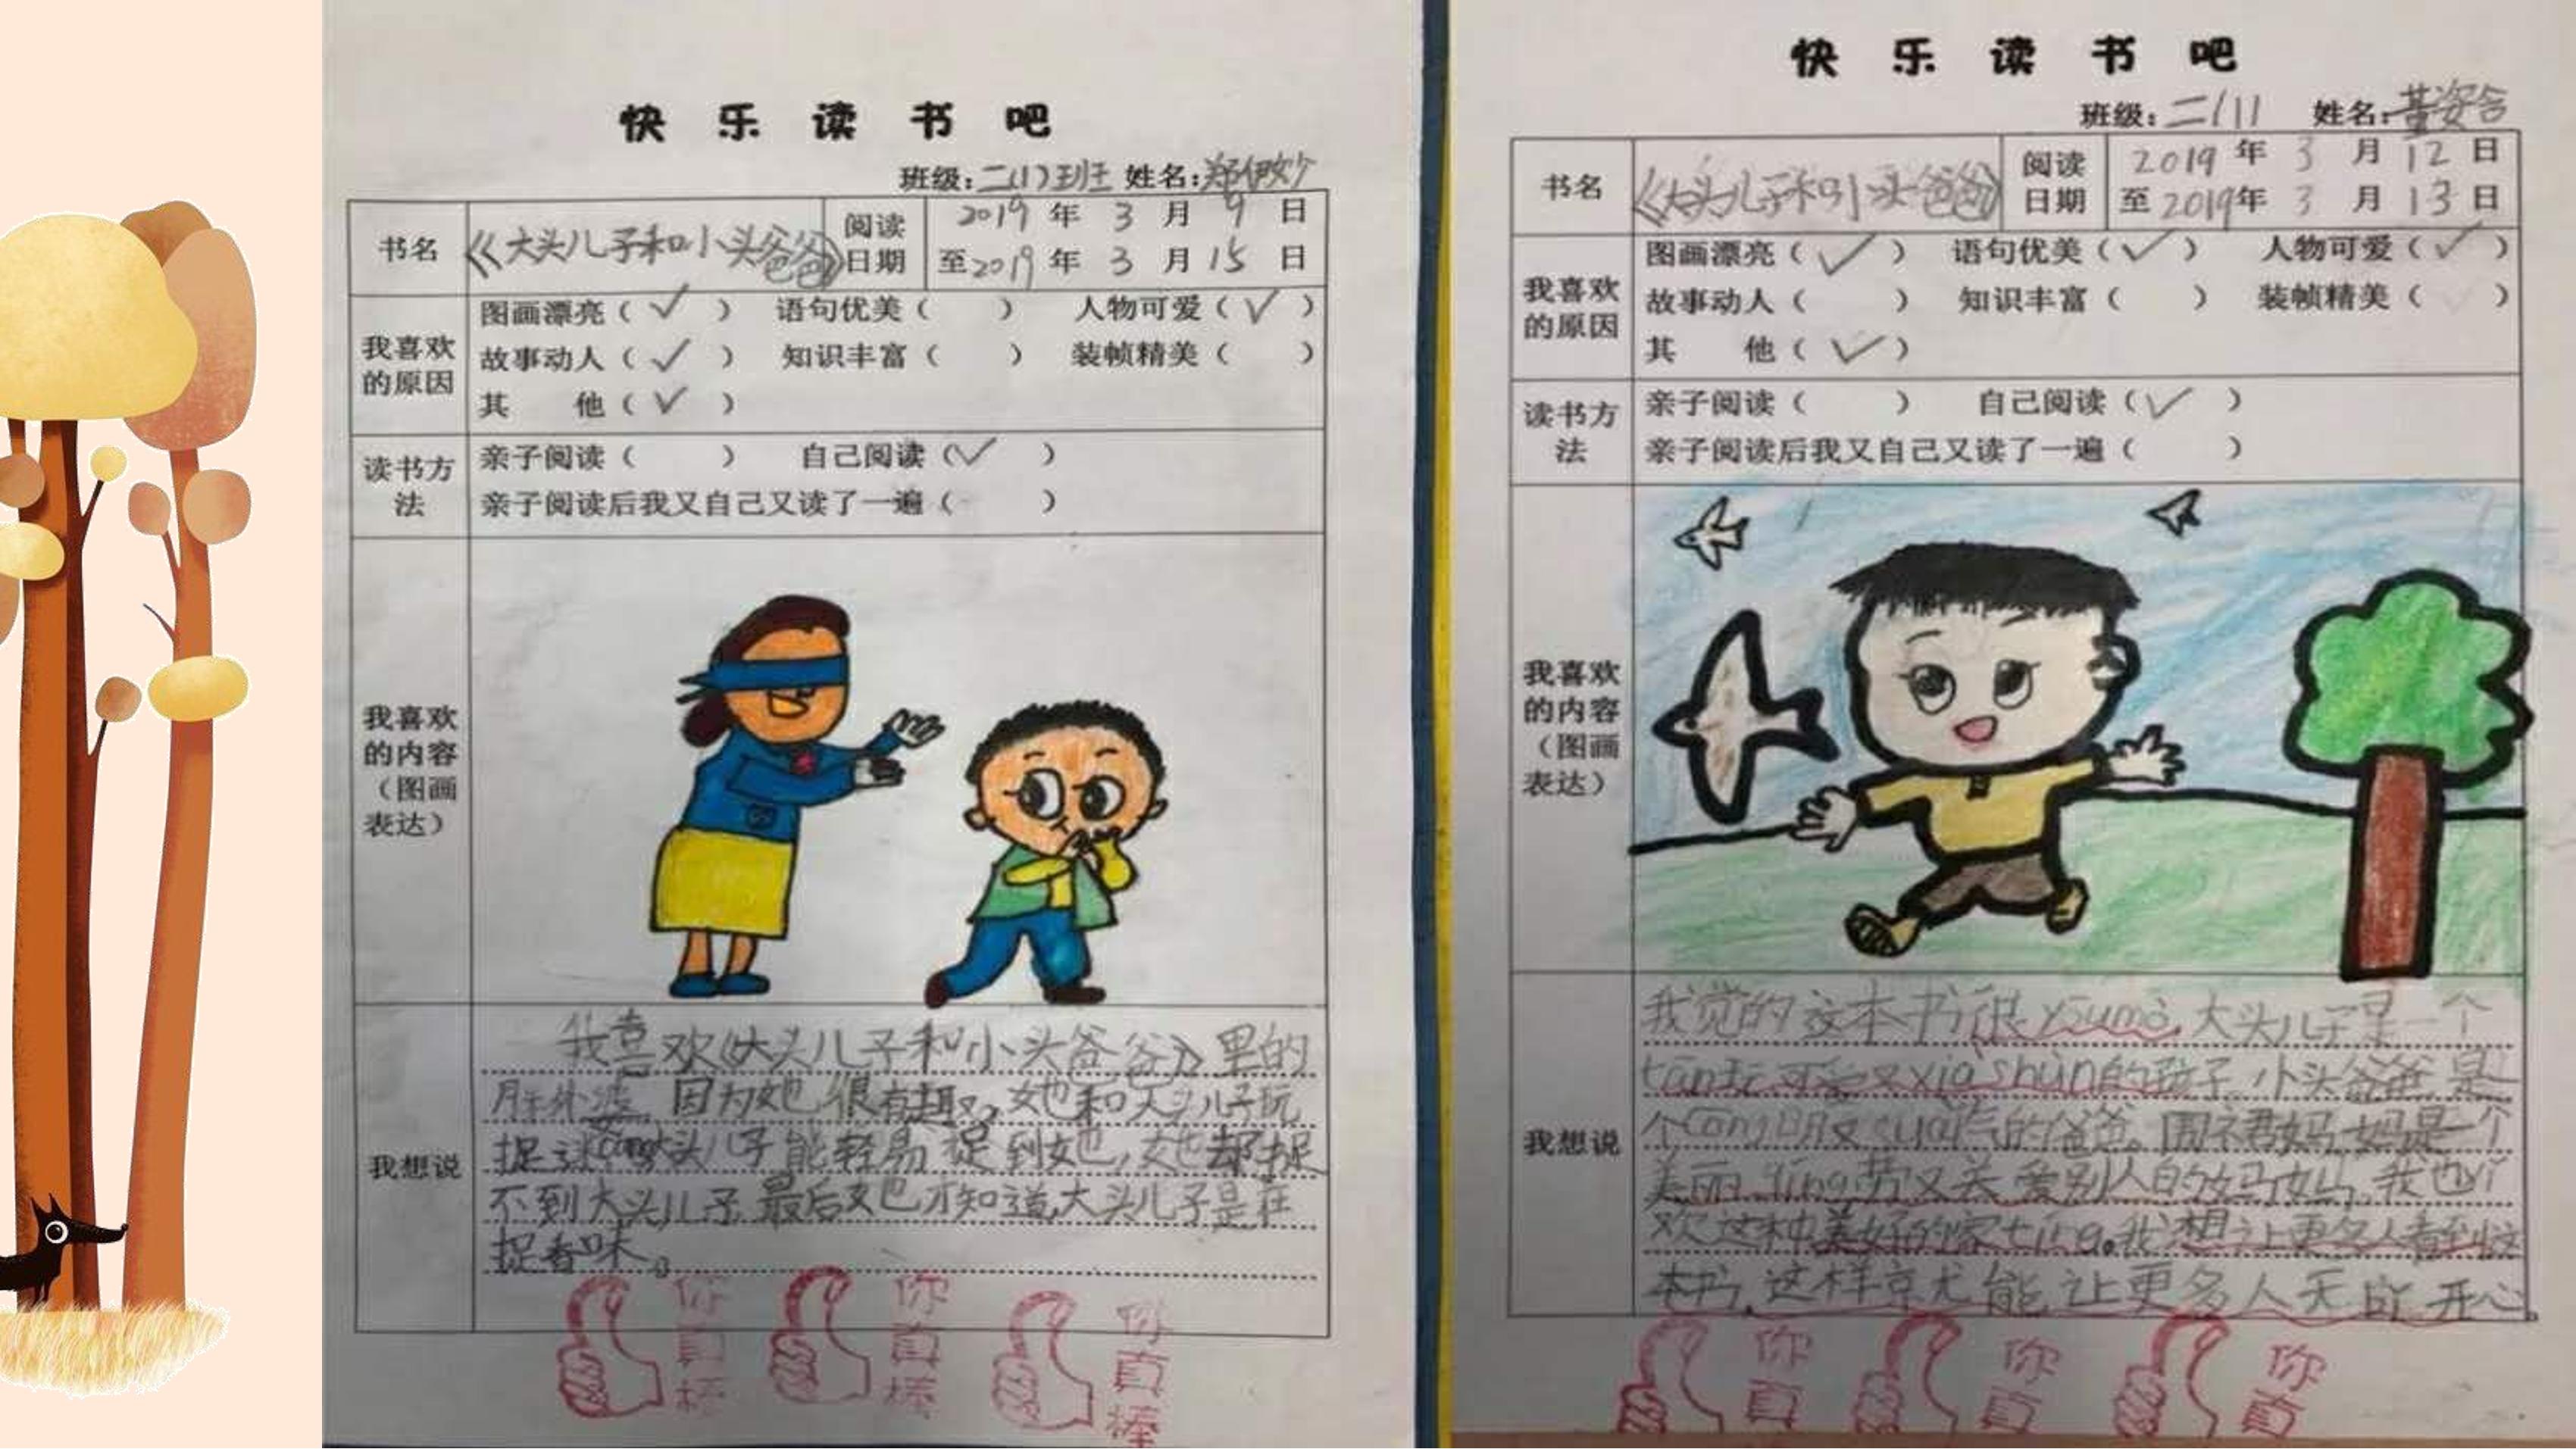 快 乐 读 书 吧
班级:二(1)班 姓名:郑伊妙
书名
《大头儿子和小头爸爸》
阅读
日期
2019 年 3 月 9 日
至2019 年 3 月 15 日
我喜欢
的原因
图画漂亮(✓) 语句优美( ) 人物可爱(✓)
故事动人(✓) 知识丰富( ) 装帧精美( )
其 他(✓)
读书方
法
亲子阅读( ) 自己阅读(✓)
亲子阅读后我又自己又读了一遍( )
我喜欢
的内容
(图画
表达)
我想说
我喜欢《大头儿子和小头爸爸》里的
胖外婆 因为她很有趣。她和大头儿子玩
捉迷cáng大头儿子能轻易捉到她,她却捉
不到大头儿子 最后她才知道大头儿子是在
捉香味。
你真棒
你真棒
你真棒
快 乐 读 书 吧
班级:二/11 姓名:董姿含
书名
《大头儿子和小头爸爸》
阅读
日期
2019 年 3 月 12 日
至 2019年 3 月 13 日
我喜欢
的原因
图画漂亮(✓) 语句优美(✓) 人物可爱(✓)
故事动人( ) 知识丰富( ) 装帧精美( )
其 他(✓)
读书方
法
亲子阅读( ) 自己阅读(✓)
亲子阅读后我又自己又读了一遍( )
我喜欢
的内容
(图画
表达)
我想说
我觉的这本书很yōumò,大头儿子是一个
tān玩可爱又xiàshùn的孩子,小头爸爸是一
个cōng明又 气的爸爸。围裙妈妈是一个
美丽 qín劳又关爱别人的妈妈,我也
欢这种美好的家tíng。我想让更多人看到这
本书,这样就能让更多人天天开心。
你真
你真
你真